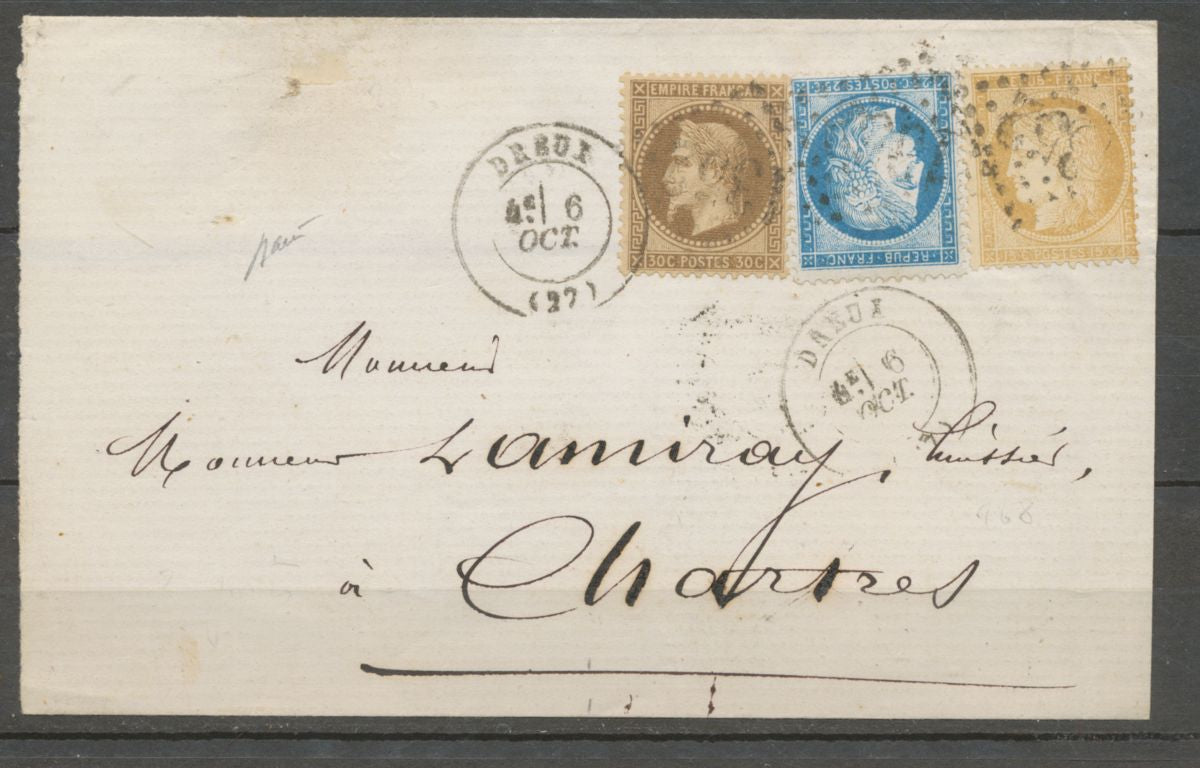 EMPIRE FRANÇAIS
30C POSTES 30C
25 C. POSTES 25 C
REPUB. FRANC.
REPUB. FRANC.
15 C. POSTES 15 C.
DREUX
4E 6
OCT.
(27)
DREUX
4E 6
OCT.
Monsieur
Monsieur Lamiray, huissier,
468
à Chartres